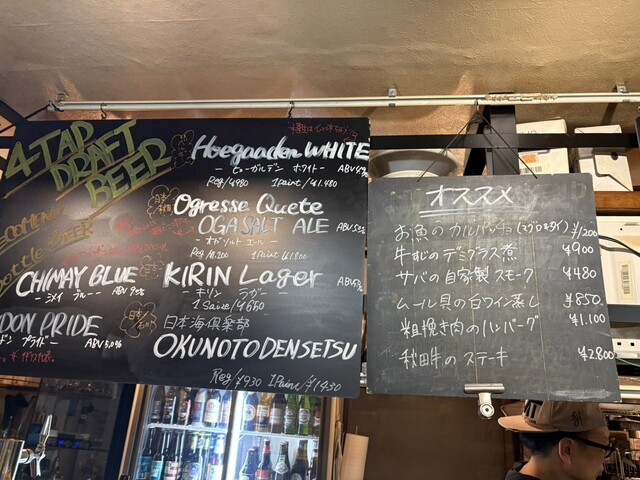 4-TAP
DRAFT
BEER
Hoegaarden WHITE
— ヒューガルデン ホワイト —
Reg/¥980 1Paint/¥1.480
Ogresse Quete
OGA SALT ALE
— オガ ソルト エール —
1Paint ¥1.800
bottle BEER
CHIMAY BLUE
— シメイ ブルー — ABV 9.0%
KIRIN Lager
— キリン ラガー —
1 Saize/¥650
DON PRIDE
ドン プライド— ABV 5.0%
日本海倶楽部
OKUNOTODENSETSU
Reg/¥930 1Paint/¥1430
オススメ
お魚のカルパッチョ(マグロ&タイ) ¥1,200
牛すじのデミグラス煮 ¥900
サバの自家製スモーク ¥480
ムール貝の白ワイン蒸し ¥850
粗挽き肉のハンバーグ ¥1.100
秋田牛のステーキ ¥2800